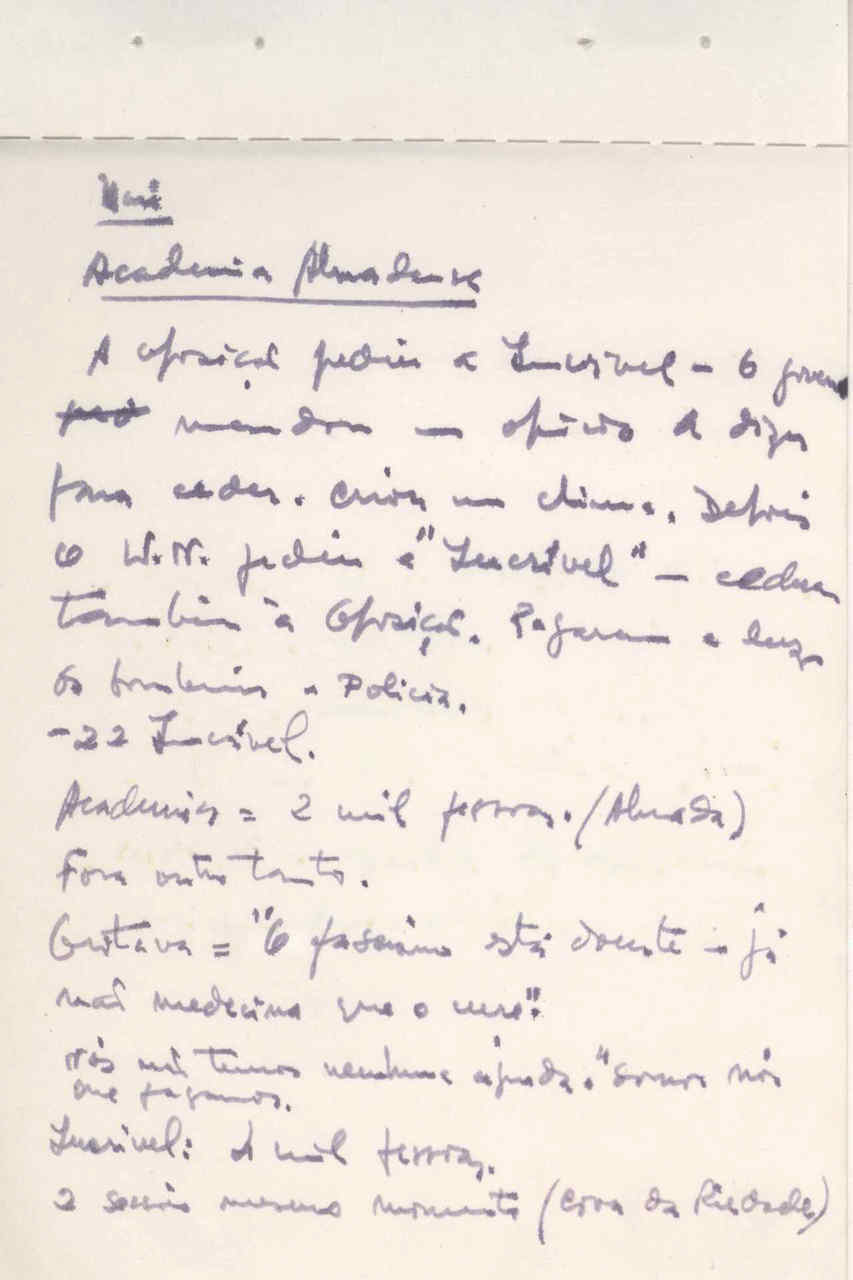 Academia Almadense
A oposição pediu a Incrível – O governo
mandou um ofício a dizer
para ceder. Criou um clima. Depois
o W.N. pediu a "Incrível" – cederam
também à Oposição. Pagaram a luz,
os bombeiros a Polícia.
-22 Incrível.
Academia = 2 mil pessoas. (Almada)
Fora outro tanto.
Gritava = "O fascismo está doente – já
não há medicina que o cure".
Nós não temos nenhuma ajuda. "Somos nós
que pagamos.
Incrível: 4 mil pessoas.
2 sessões mesmo momento (Cova da Piedade)